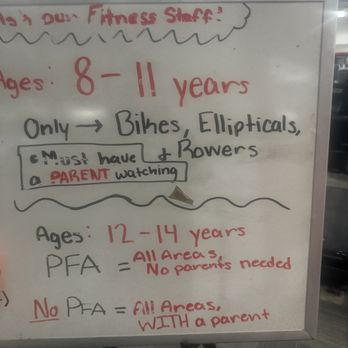 our Fitness Staff!
Ages: 8-11 years
Only → Bikes, Ellipticals,
& Rowers
• Must have
a PARENT watching
Ages: 12-14 years
PFA = All Areas,
No parents needed
No PFA = All Areas,
WITH a parent